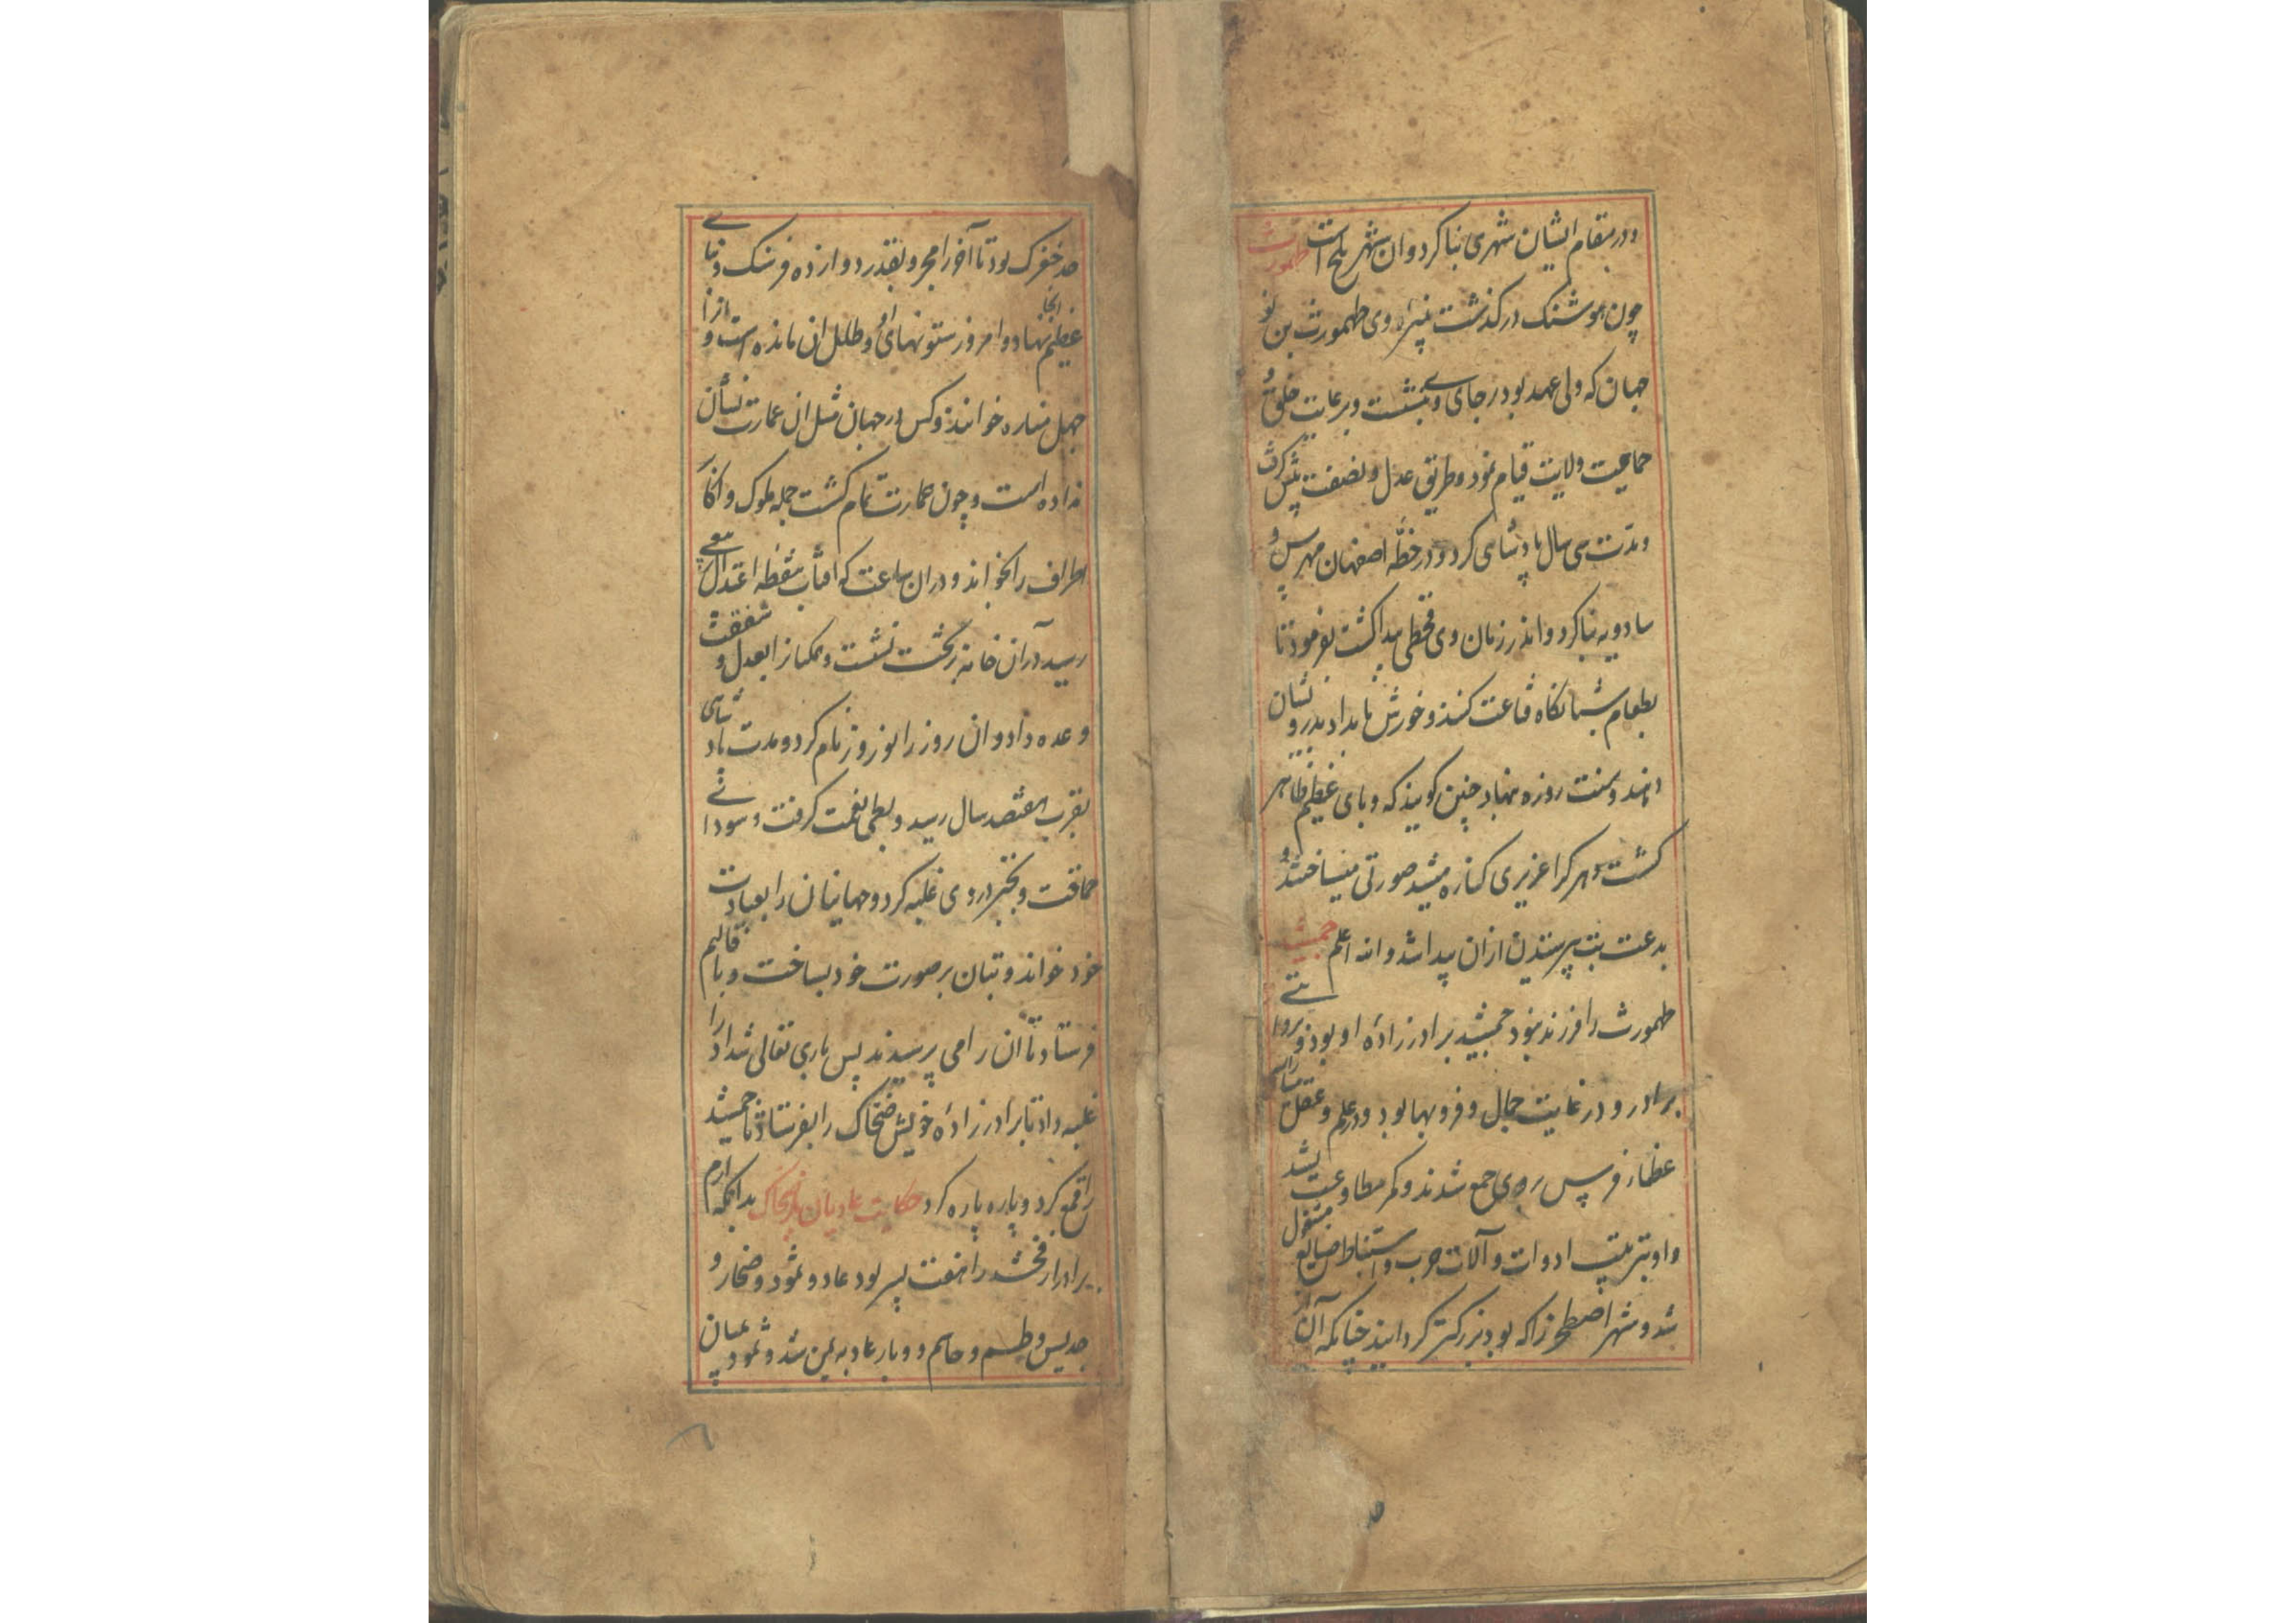 و در مقام ایشان شهری بنا کرد و ان شهر بلخ است طهمورث
چون هوشنک درکذشت نبیرۀ وی طهمورث بن نو
جهان که ولی عهد بود بر جای وی بنشست و برعایت خلق و
حمایت ولایت قیام نمود و طریق عدل و نصفت پیش کرفت
و مدّت سی سال پادشاهی کرد و در خطّه اصفهان مهرین و
سادویه بنا کرد و اندر زمان وی قحطی پیدا کشت بفرمود تا
بطعام شبانکاه قناعت کنند و خورش بامداد بدرویشان
دهند و سنت روزه بنهاد چنین کویند که وبای عظیم ظاهر
کشت و هر کرا عزیزی کناره میشد صورتی میساختند و
بدعت بت پرستیدن ازان پیدا شد والله اعلم جمشید
طهمورث را فرزند نبود جمشید برادر زادۀ او بود و بروایتی
برادر و در غایت جمال و فر و بها بود و در علم و عقل
عظماء فرس بر وی جمع شدند و کمر مطاوعت
و او بترتیب ادوات و آلات حرب و استنباط صنایع مشغول
شد و شهر اصطخر را که بود بزرکتر کردانید چنانکه آن از
حد خفرک بود تا آخر رامجرد بقدر دوازده فرسنک و بنائی
عظیم انجا بنهاد و امروز ستونهای او و طلل ان مانده است و انرا
چهل مناره خوانند و کس در جهان مثل ان عمارت نشان
نداده است و چون عمارت تمام کشت جمله ملوک و اکابر
اطراف را بخواند و دران ساعت که افتاب بنقطه اعتدال ربیعی
رسید در آن خانه بر تخت نشست و همکنانرا بعدل و شفقت
وعده داد و ان روز را نوروز نام کرد و مدت پادشاهی
بقرب هفتصد سال رسید و بطر نعمت کرفت و سودائی
حماقت و تجبّر در وی غلبه کرد و جهانیان را بعبادت
خود خواند و بتان بر صورت خود بساخت و باقالیم
فرستاد تا ان را می پرستیدند پس باری تعالی شداد را
غلبه داد تا برادر زادۀ خویش ضحّاک را بفرستاد تا جمشید
را قمع کرد و پاره پاره کرد حکایت عادیان با ضحاک بدانکه ارم
برادر ارفخشد را هفت پسر بود عاد و ثمود و صحار و
جدیس و طسم و جاسم و وبار عاد به یمن شد و ثمود میان